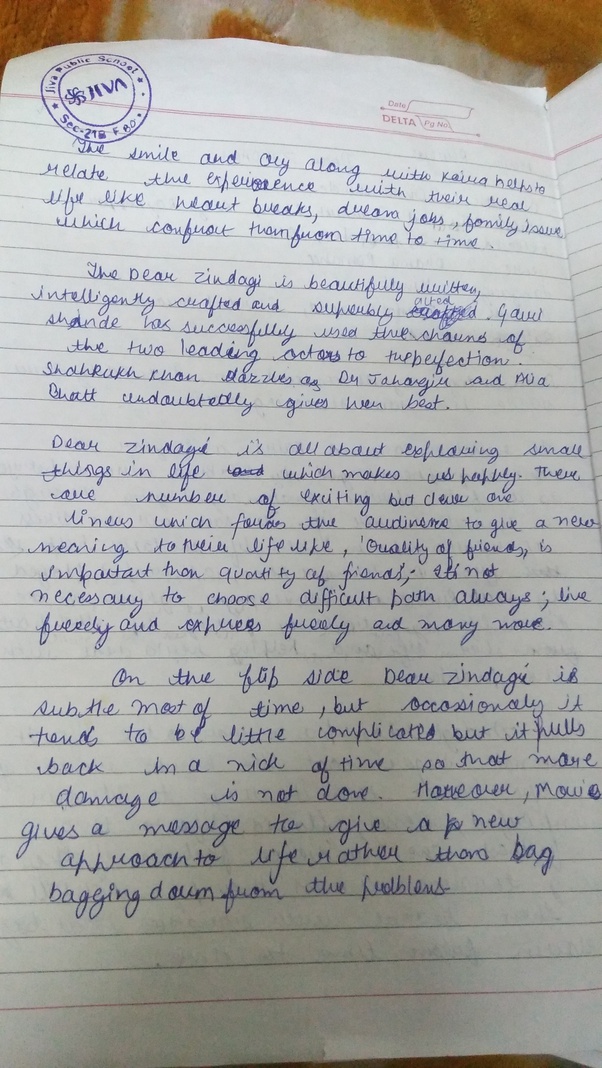 Jiva Public School
JIVA
Sec-21B F.B.D.
Date
DELTA Pg No.
The smile and cry along with Kaira helps to
relate the experience with their real
life like heart breaks, dream jobs, family issue
which confront them from time to time.
The Dear Zindagi is beautifully written,
intelligently crafted and superbly acted. Gauri
shinde has successfully used the charms of
the two leading actors to the perfection.
Shahrukh Khan dazzles as Dr Jahangir and Alia
Bhatt undoubtedly gives her best.
Dear Zindagi is all about exploring small
things in life which makes us happy. There
are number of exciting but clever one
liners which forces the audience to give a new
meaning to their life like, 'Quality of friends, is
important than quantity of friends', - It's not
necessary to choose difficult path always; live
freely and express freely and many more.
On the flip side Dear Zindagi is
subtle most of time, but occassionaly it
tends to be little complicated but it pulls
back in a nick of time so that more
damage is not done. However, Movie
gives a message to give a new
approach to life rather than bag
bagging down from the problems